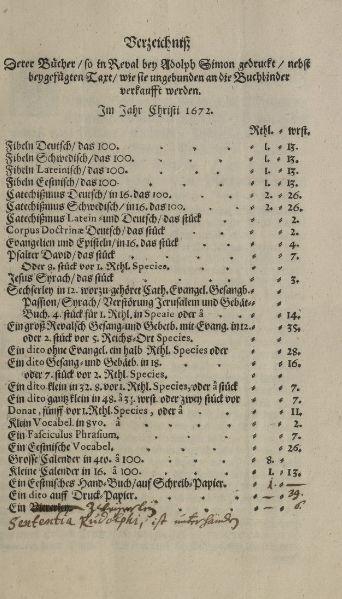 Verzeichniß
Derer Bücher / so in Reval bey Adolph Simon gedruckt / nebst
beygefügten Taxt / wie sie ungebunden an die Buchbinder
verkaufft werden.
Im Jahr Christi 1672.
Rthl. wrst.
Fibeln Deutsch / das 100. 1. 13.
Fibeln Schwedisch / das 100. 1. 13.
Fibeln Lateinisch / das 100. 1. 13.
Fibeln Eestnisch / das 100. 1. 13.
Catechismus Deutsch / in 16. das 100. 2. 26.
Catechismus Schwedisch / in 16. das 100. 2. 26.
Catechismus Latein- und Deutsch / das stück 2.
Corpus Doctrinæ Deutsch / das stück 2.
Evangelien und Episteln / in 16. das stück 4.
Psalter David / das stück 7.
Oder 8. stück vor 1. Rthl. Species.
Jesus Syrach / das stück 3.
Sechserley in 12. worzu gehöret Cath. Evang. Gesangb.
Passion / Syrach / Verstörung Jerusalem und Gebät-
Buch. 4. stück für 1. Rthl. in Specie oder â 14.
Ein groß Revalsch Gesang- und Gebetb. mit Evang. in 12. 35.
oder 2. stück vor 5. Reichs-Ort Species.
Ein dito ohne Evangel. ein halb Rthl. Species oder 28.
Ein dito Gesang- und Gebätb. in 18. 16.
oder 7. stück vor 2. Rthl. Species.
Ein dito klein in 32. 8. vor 1. Rthl. Species / oder â stück 7.
Ein dito gantz klein in 48. â 3½. wrst. oder zwey stück vor 7.
Donat, fünff vor 1. Rthl. Species, oder â 11.
Klein Vocabel. in 8vo. â 2.
Ein Fasciculus Phrasium. 7.
Ein Eestnische Vocabel. 26.
Grosse Calender in 4to. â 100. 8.
Kleine Calender in 16. â 100. 1. 13.
Ein Eestnisches Hand-Buch / auf Schreib-Papier. 1.
Ein dito auff Druck-Papier. 39.
Ein 6.
Sententia Rudolphi, ist unterhanden